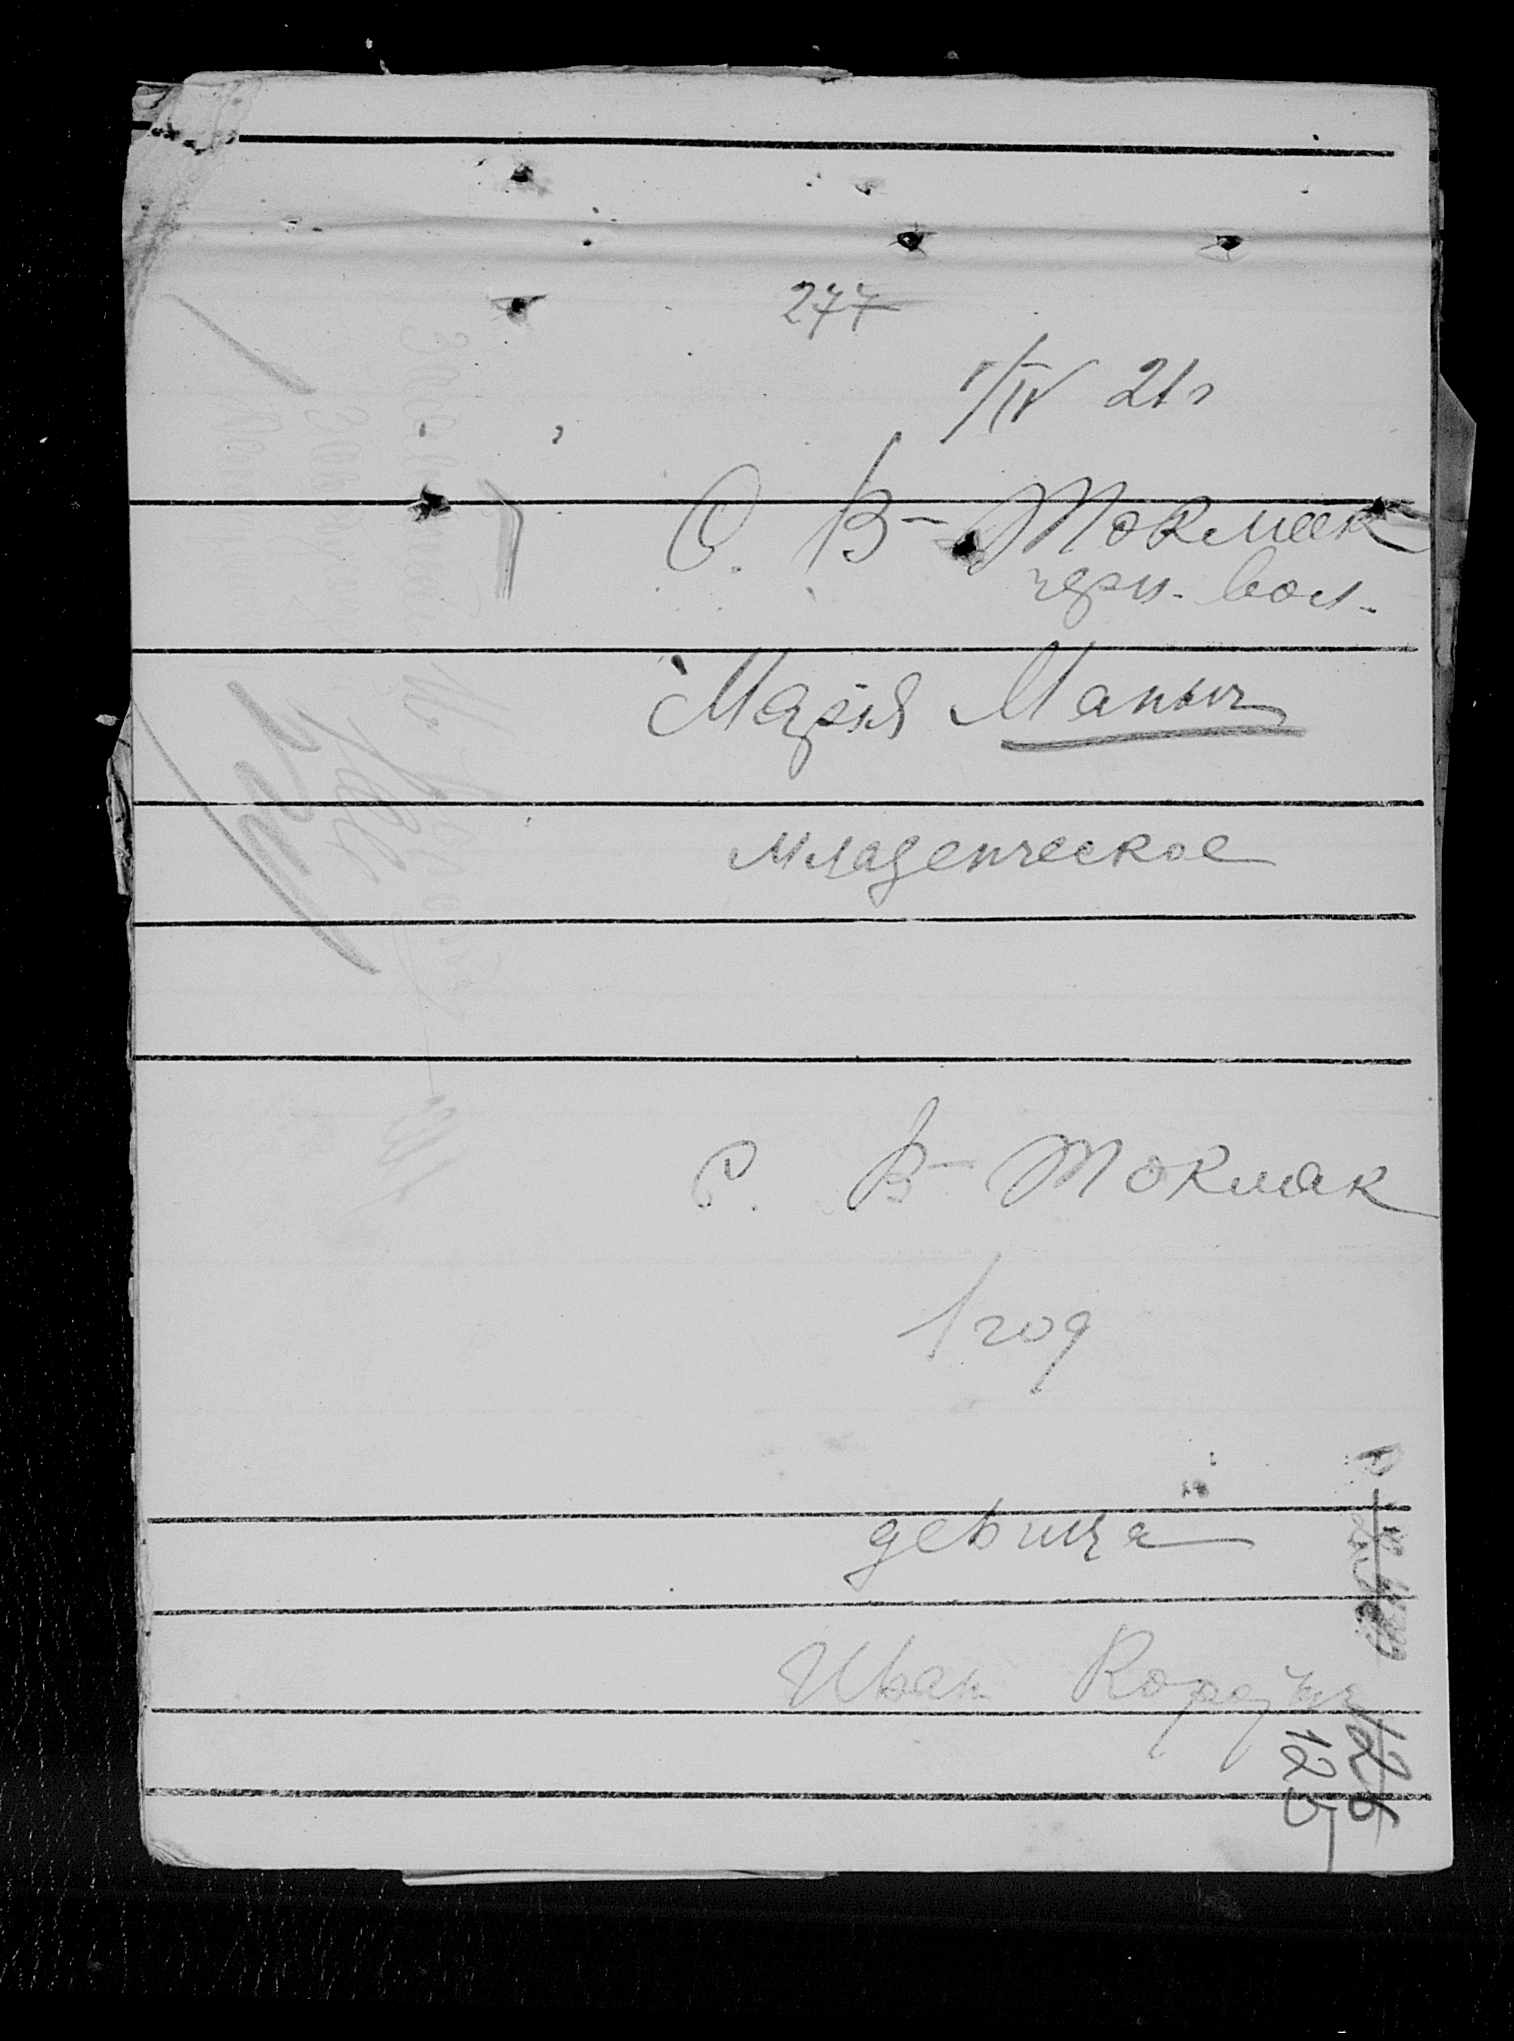 277
1/IV 21г
С. В-Токмак
черн. вол.
Мария Маныч
Младенческое
с. В-Токмак
1 год
девица
Иван
126
125